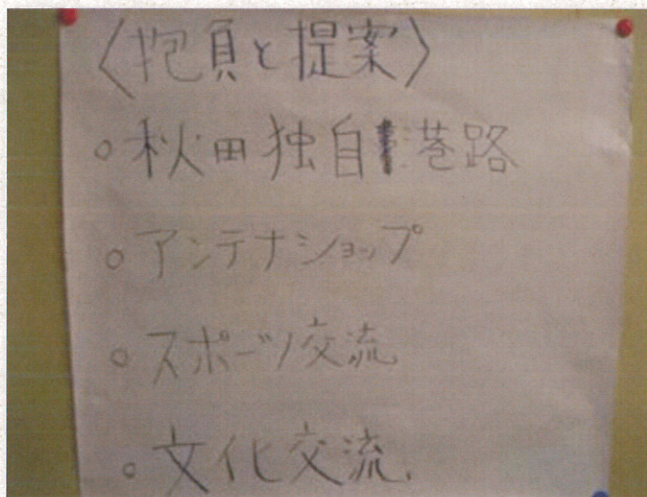 〈抱負と提案〉
○秋田独自港路
○アンテナショップ
○スポーツ交流
○文化交流.